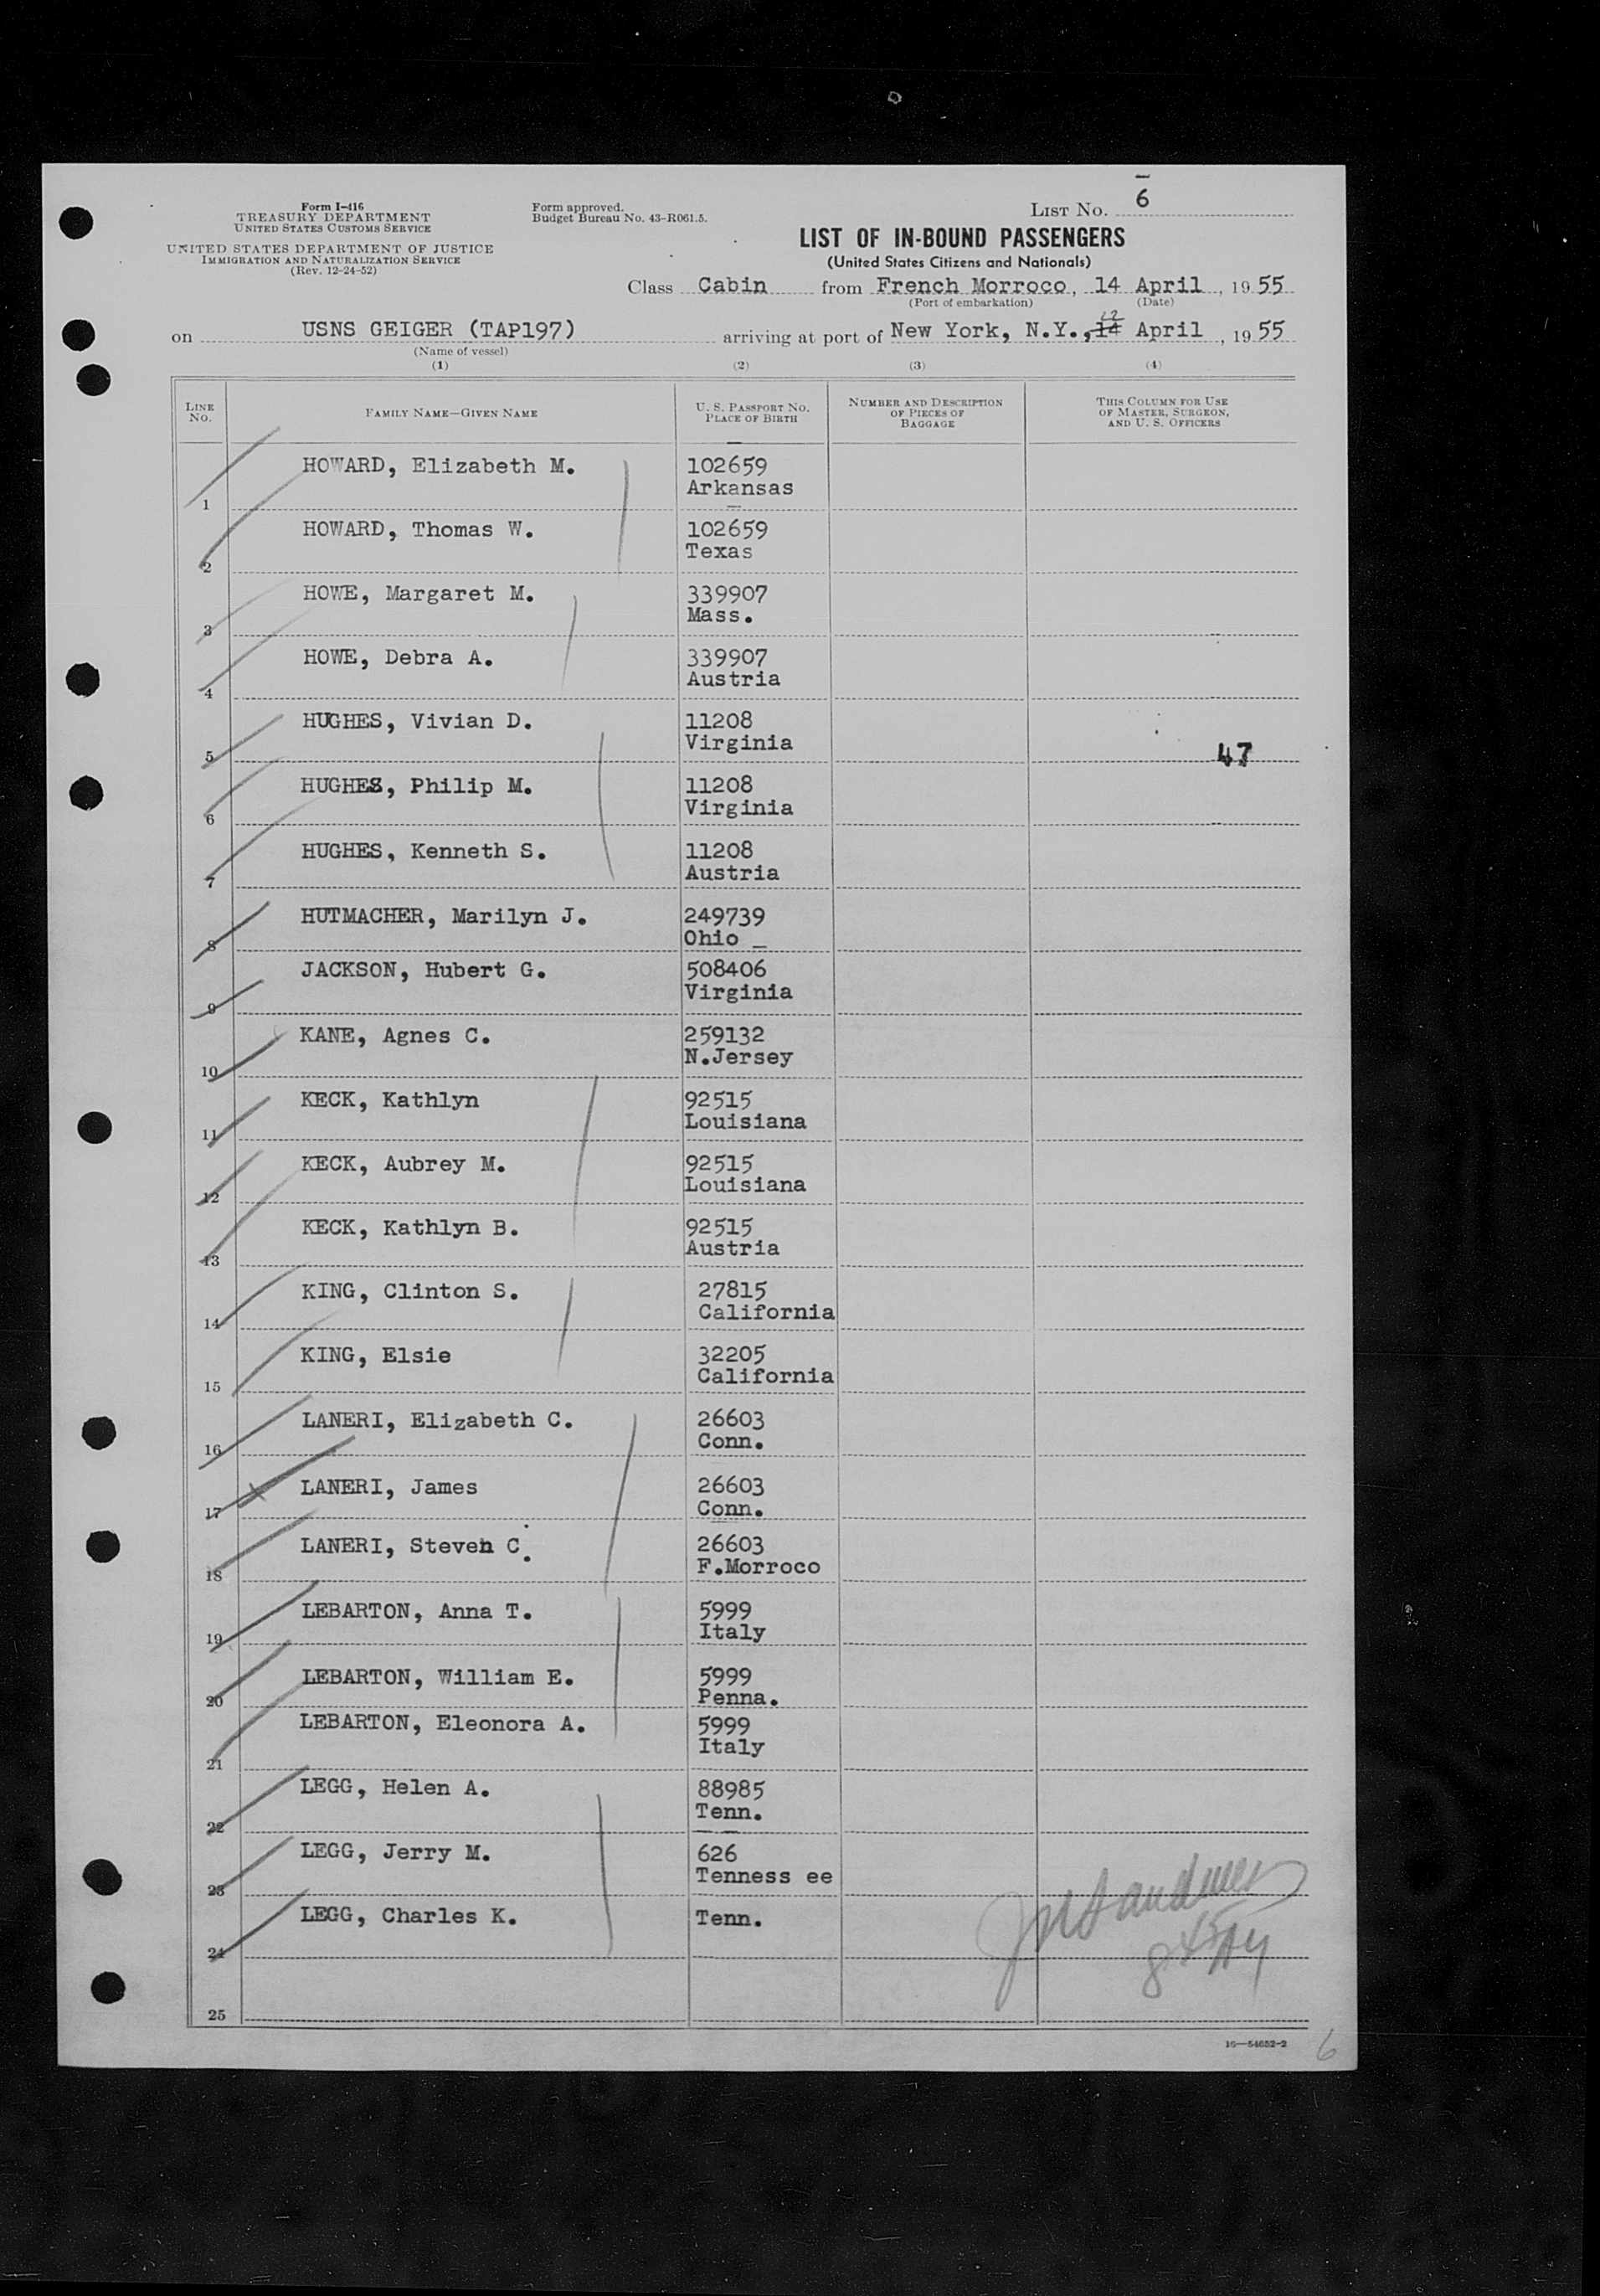 Form I-416
TREASURY DEPARTMENT
UNITED STATES CUSTOMS SERVICE
UNITED STATES DEPARTMENT OF JUSTICE
IMMIGRATION AND NATURALIZATION SERVICE
(Rev. 12-24-52)
Form approved.
Budget Bureau No. 43-R061.5.
LIST No. 6
LIST OF IN-BOUND PASSENGERS
(United States Citizens and Nationals)
Class Cabin from French Morroco, 14 April, 1955
(Port of embarkation) (Date)
on USNS GEIGER (TAP197) arriving at port of New York, N.Y., 14 April, 1955
(Name of vessel)
(1) (2) (3) (4)
LINE NO. FAMILY NAME—GIVEN NAME U. S. PASSPORT NO. PLACE OF BIRTH NUMBER AND DESCRIPTION OF PIECES OF BAGGAGE THIS COLUMN FOR USE OF MASTER, SURGEON, AND U. S. OFFICERS
HOWARD, Elizabeth M. 102659
1 Arkansas
HOWARD, Thomas W. 102659
2 Texas
HOWE, Margaret M. 339907
3 Mass.
HOWE, Debra A. 339907
4 Austria
HUGHES, Vivian D. 11208
5 Virginia 47
HUGHES, Philip M. 11208
6 Virginia
HUGHES, Kenneth S. 11208
7 Austria
HUTMACHER, Marilyn J. 249739
8 Ohio
JACKSON, Hubert G. 508406
9 Virginia
KANE, Agnes C. 259132
10 N.Jersey
KECK, Kathlyn 92515
11 Louisiana
KECK, Aubrey M. 92515
12 Louisiana
KECK, Kathlyn B. 92515
13 Austria
KING, Clinton S. 27815
14 California
KING, Elsie 32205
15 California
LANERI, Elizabeth C. 26603
16 Conn.
LANERI, James 26603
17 Conn.
LANERI, Steven C. 26603
18 F.Morroco
LEBARTON, Anna T. 5999
19 Italy
LEBARTON, William E. 5999
20 Penna.
LEBARTON, Eleonora A. 5999
21 Italy
LEGG, Helen A. 88985
22 Tenn.
LEGG, Jerry M. 626
23 Tenness ee
LEGG, Charles K. Tenn.
24
25
16—54652-2
6